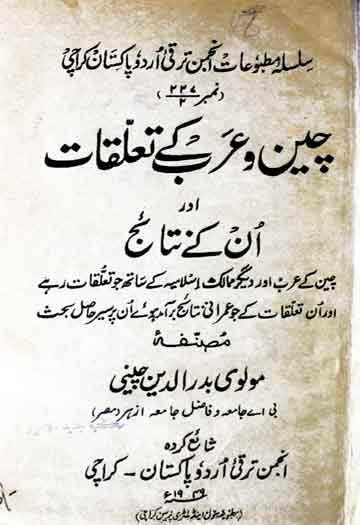 سلسلہ مطبوعات انجمن ترقی اُردو پاکستان کراچی
(نمبر ۲۲۷/۲)
چین و عرب کے تعلقات
اور
اُن کے نتائج
چین کے عرب اور دیگر ممالک اسلامیہ کے ساتھ جو تعلقات رہے
اور ان تعلقات کے جو عمرانی نتائج برآمد ہوئے اُن پر سیر حاصل بحث
مصنفہ
مولوی بدر الدین چینی
بی اے جامعہ و فاضل جامعہ ازہر (مصر)
شائع کردہ
انجمن ترقی اُردو پاکستان - کراچی
۱۹۴۹ء
پریس کراچی)